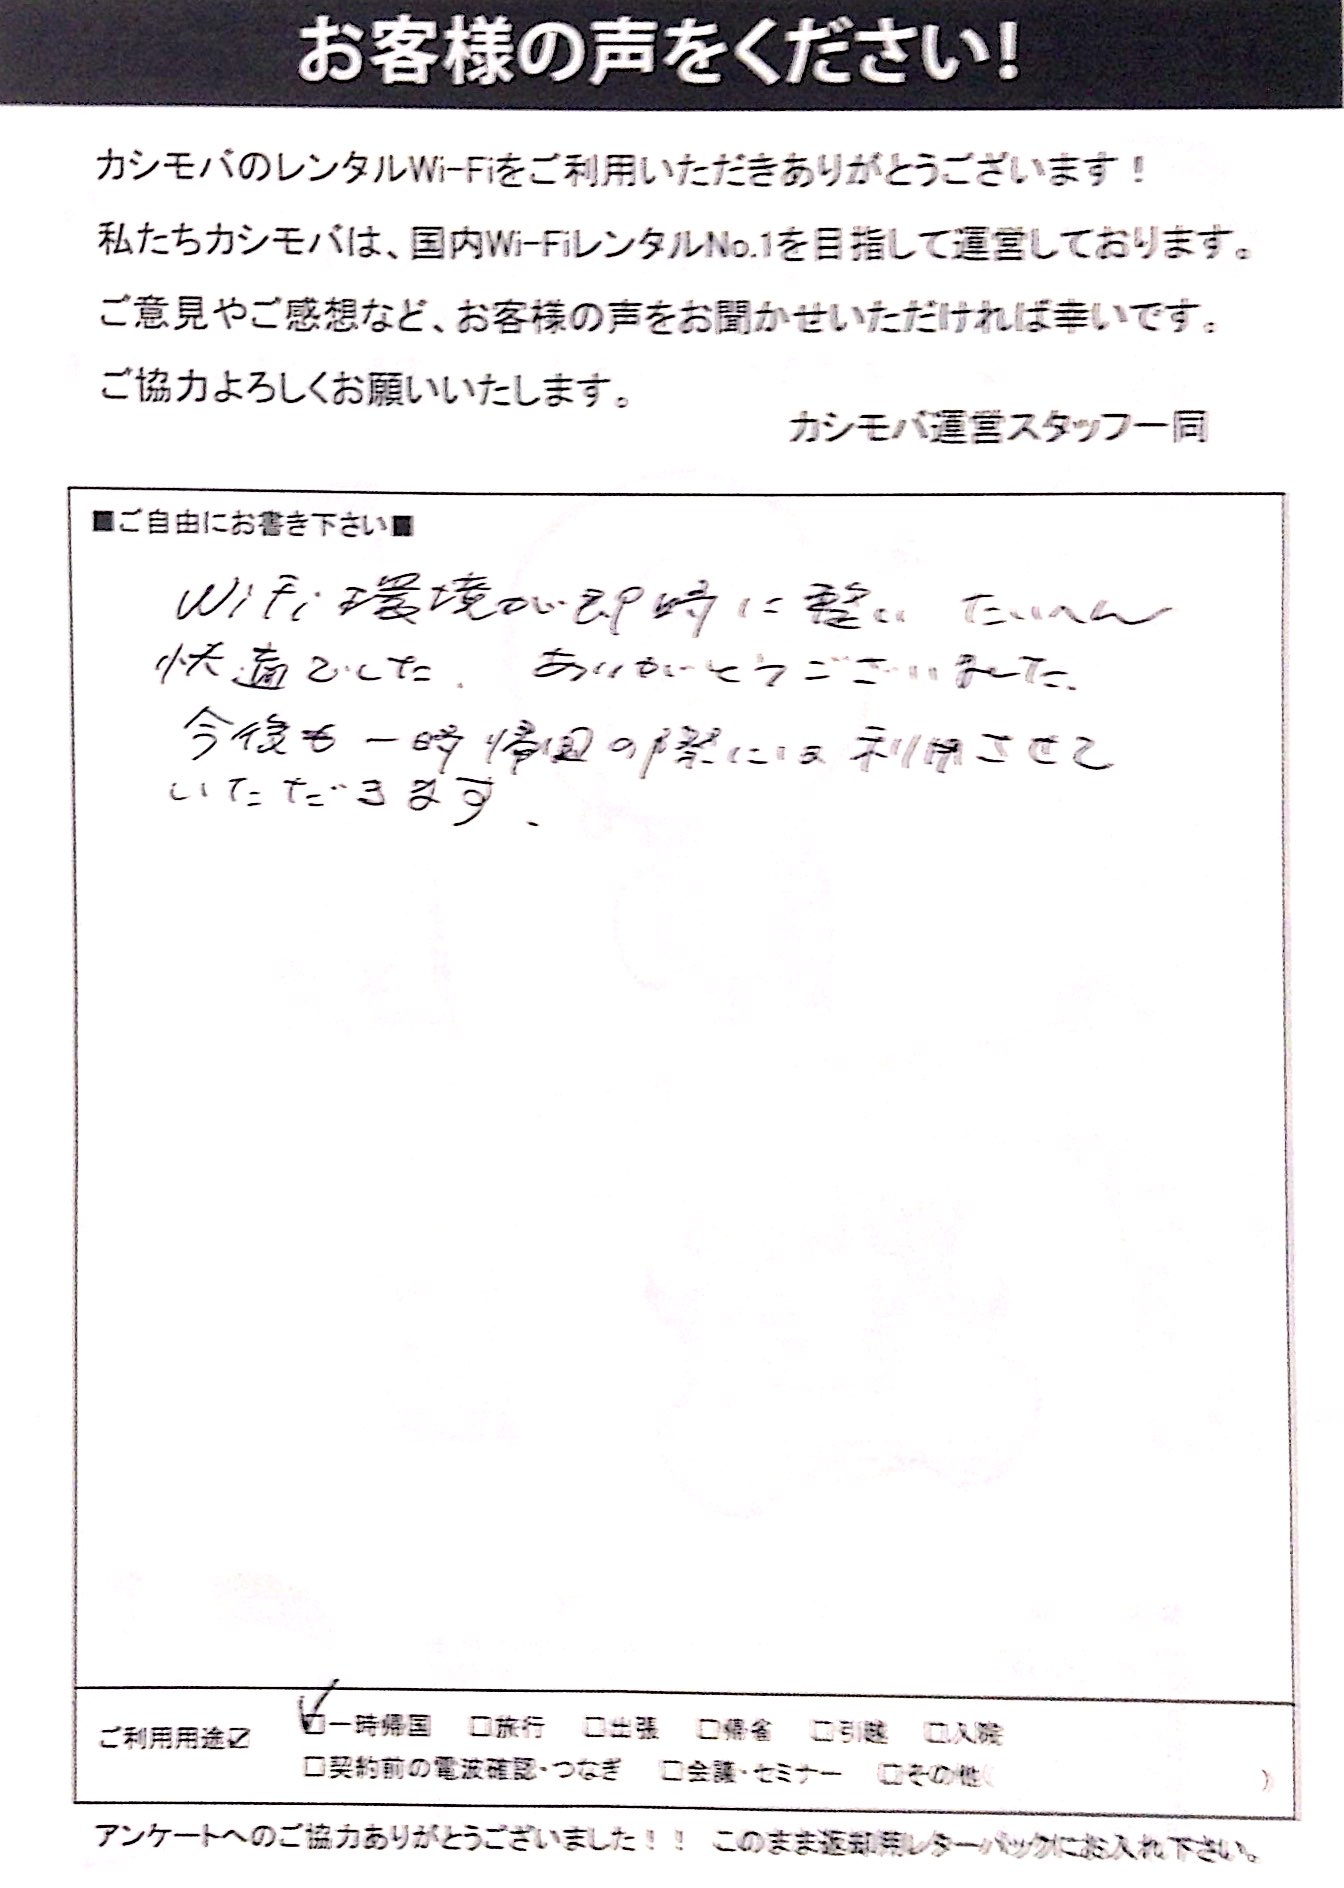 お客様の声をください!
カシモバのレンタルWi-Fiをご利用いただきありがとうございます！
私たちカシモバは、国内Wi-FiレンタルNo.1を目指して運営しております。
ご意見やご感想など、お客様の声をお聞かせいただければ幸いです。
ご協力よろしくお願いいたします。
カシモバ運営スタッフ一同
■ご自由にお書き下さい■
WiFi環境が即時に整い たいへん
快適でした. ありがとうございました.
今後も一時帰国の際には利用させて
いただきます.
ご利用用途☑ ☑一時帰国 □旅行 □出張 □帰省 □引越 □入院
□契約前の電波確認・つなぎ □会議・セミナー □その他( )
アンケートへのご協力ありがとうございました！！ このまま返却用レターパックにお入れ下さい。